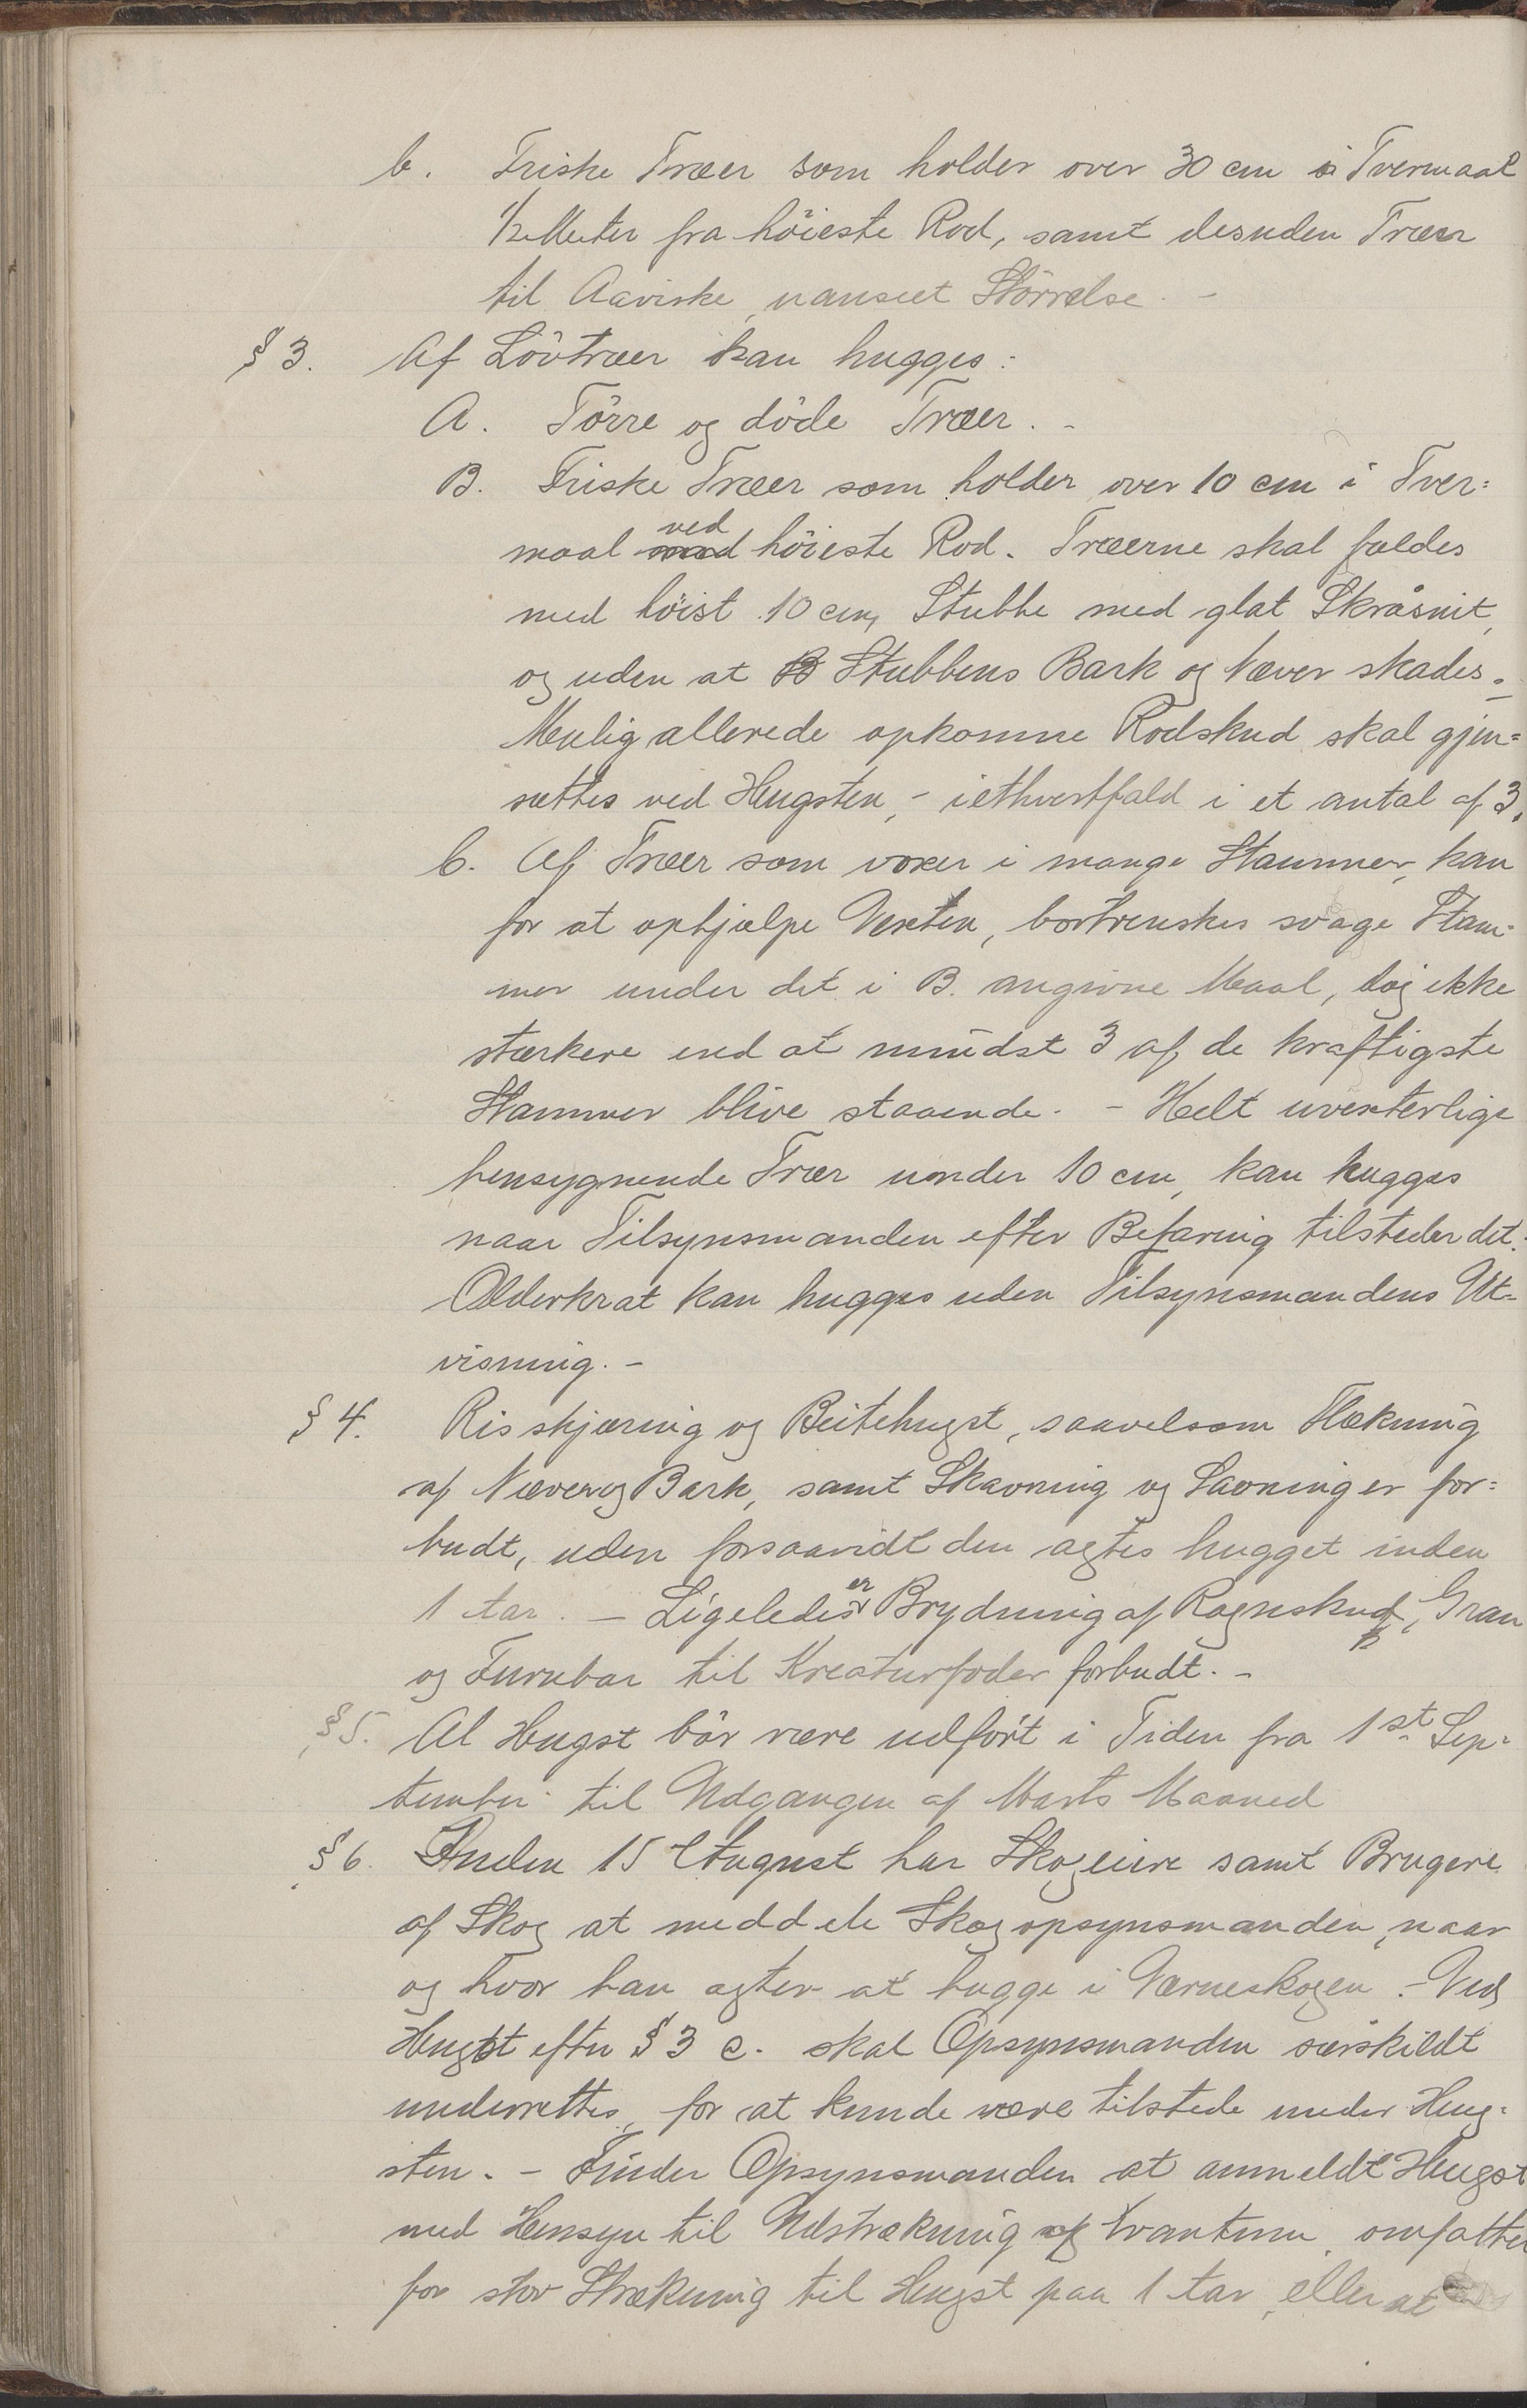 b. Friske Træer som holder over 30 cm i Tvermaal
1/2 Meter fra höieste Rod, samt desuden Træer
til Aaviske, uanseet Störrelse. -
§ 3. Af Lövtræer kan hugges:
A. Törre og döde Træer. -
B. Friske Træer som holder over 10 cm i Tver=
maal ved höieste Rod. Træerne skal fældes
med höist 10 cm, Stubbe med glat Skråsnit,
og uden at Stubbens Bark og Næver skades. -
Mulig allerede opkomne Rodskud skal gjen=
sættes ved Hugsten, - iethvertfald i et antal af 3.
C. Af Træer som voxer i mange Stammer, kan
for at ophjælpe Vexten, bortrenskes svage Stam-
mer under det i B. angivne Maal, dog ikke
stærkere end at mindst 3 af de kraftigste
Stammer blive staaende. - Helt uvexterlige
hensygnende Trær under 10 cm, kan hugges
naar Tilsynsmanden efter Befaring tilsteder det.
Olderkrat kan hugges uden Tilsynsmandens Ut-
visning. -
§ 4. Risskjæring og Beitehugst, saavelsom Flækning
af Næver og Bark, samt Skavning og Savning er for=
budt, uden forsaavidt den agtes hugget inden
1 Aar. - Ligeledes er Brydning af Rogneskud, Gran
og Furubar til Kreaturfoder forbudt. -
§ 5. Al Hugst bör være udfört i Tiden fra 1st Sep=
tember til Udgangen af Marts Maaned
§ 6. Inden 15 August har Skogeiere samt Brugere
af Skog at meddele Skogopsynsmanden, naar
og hvor han agter at hugge i Værneskogen. - Ved
Hugst efter § 3 c. skal Opsynsmanden særskildt
underrettes, for at kunde være tilstede under Hug=
sten. - Finder Opsynsmanden at anmeldt Hugst
med Hensyn til Udstrækning og Kvantum, omfatter
for stor Strækning til Hugst paa 1 Aar, eller at